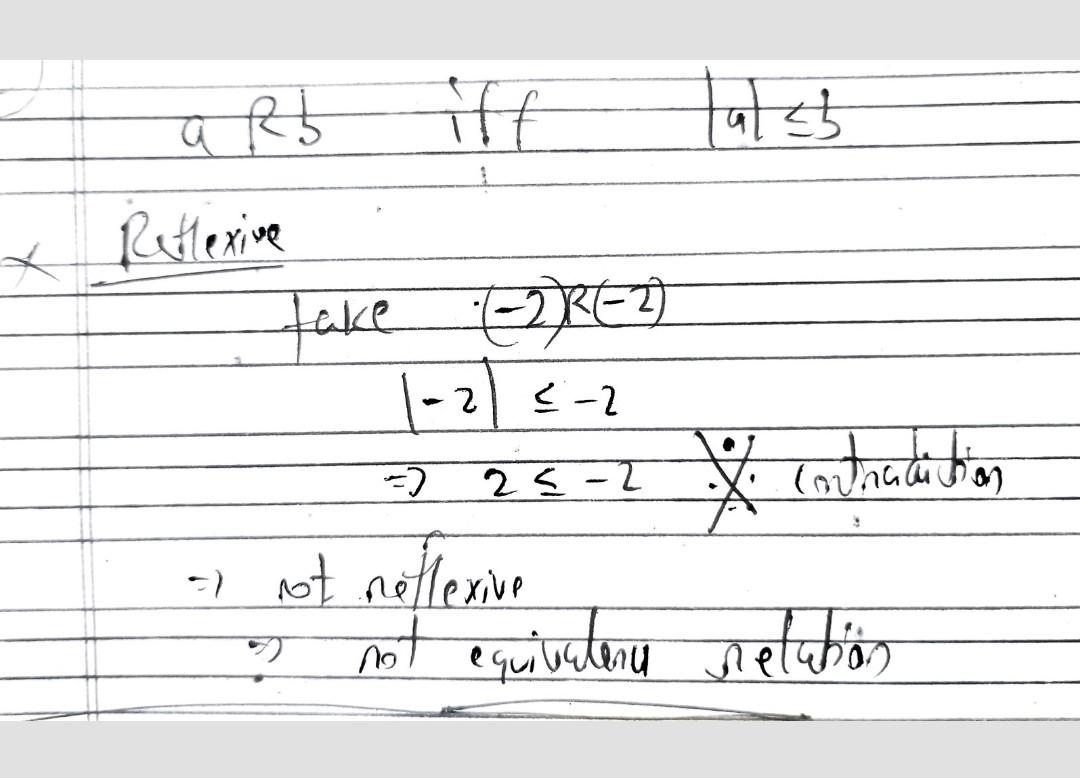 a R b iff |a| ≤ b
Reflexive
take (-2)R(-2)
|-2| ≤ -2
=> 2 ≤ -2 contradiction
=> not reflexive
=> not equivalence relation